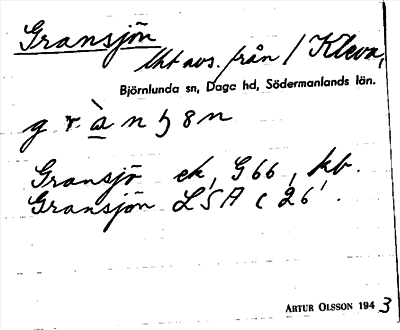 Gransjön
lht avs. från / Kleva,
Björnlunda sn, Daga hd, Södermanlands län.
g r à n ɧ 8 n
Gransjö ek, G66, kb.
Gransjön LSA C 26.
ARTUR OLSSON 1943